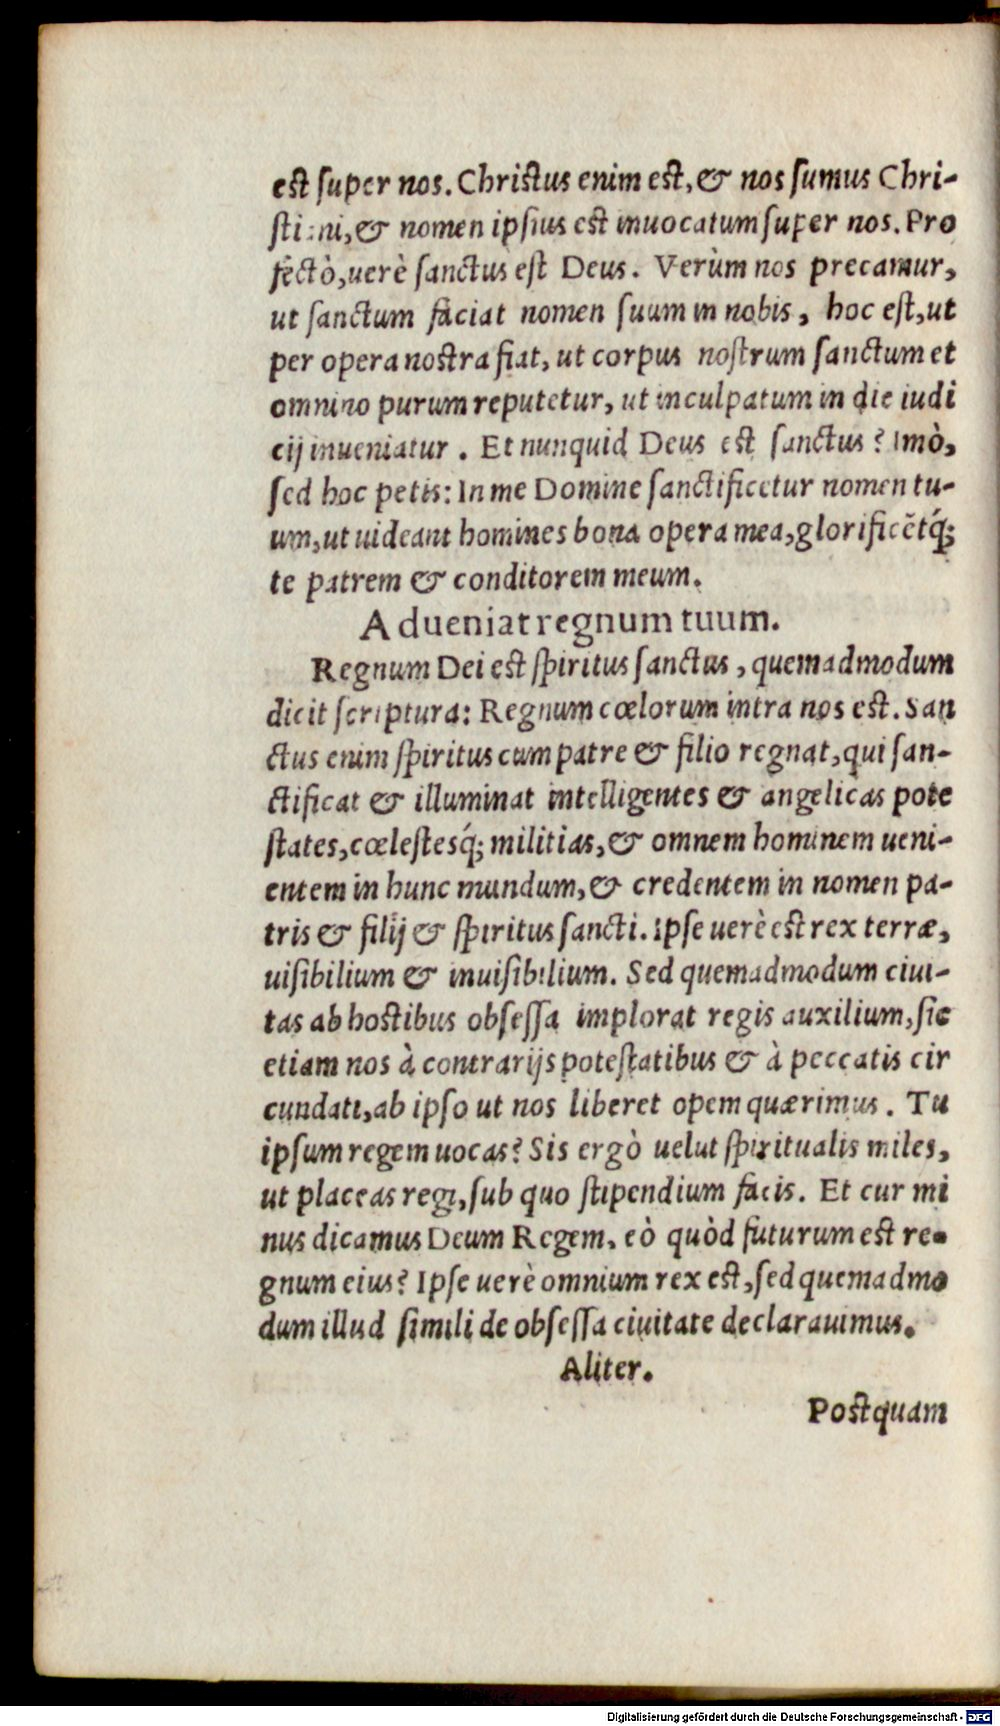 est super nos. Christus enim est, & nos sumus Chri-
stiani, & nomen ipsius est inuocatum super nos. Pro
fectò, uerè sanctus est Deus. Verùm nos precamur,
ut sanctum faciat nomen suum in nobis, hoc est, ut
per opera nostra fiat, ut corpus nostrum sanctum et
omnino purum reputetur, ut inculpatum in die iudi
cij inueniatur. Et nunquid Deus est sanctus? Imò,
sed hoc petis: In me Domine sanctificetur nomen tu-
um, ut uideant homines bona opera mea, glorificẽtq́;
te patrem & conditorem meum.
Adueniat regnum tuum.
Regnum Dei est spiritus sanctus, quemadmodum
dicit scriptura: Regnum cœlorum intra nos est. San
ctus enim spiritus cum patre & filio regnat, qui san-
ctificat & illuminat intelligentes & angelicas pote
states, cœlestesq́; militias, & omnem hominem ueni-
entem in hunc mundum, & credentem in nomen pa-
tris & filij & spiritus sancti. Ipse uerè est rex terræ,
uisibilium & inuisibilium. Sed quemadmodum ciui-
tas ab hostibus obsessa implorat regis auxilium, sic
etiam nos à contrarijs potestatibus & à peccatis cir
cundati, ab ipso ut nos liberet opem quærimus. Tu
ipsum regem uocas? Sis ergò uelut spiritualis miles,
ut placeas regi, sub quo stipendium facis. Et cur mi
nus dicamus Deum Regem, eò quòd futurum est re-
gnum eius? Ipse uerè omnium rex est, sed quemadmo
dum illud simili de obsessa ciuitate declarauimus.
Aliter.
Postquam
Digitalisierung gefördert durch die Deutsche Forschungsgemeinschaft - DFG